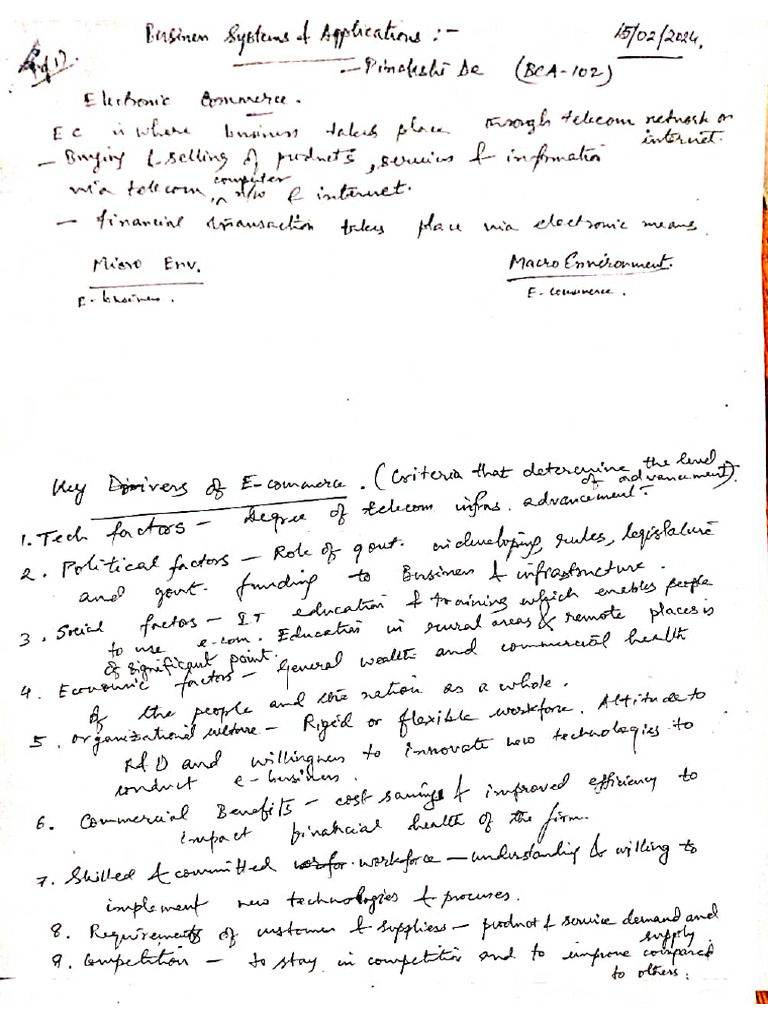 Business Systems & Applications :-
15/02/2024.
- Pinakshi De (BCA-102)
Electronic Commerce.
EC is where business takes place through telecom network or internet.
- Buying & selling of products, services & information
via telecom, computer n/w & internet.
- financial transaction takes place via electronic means.
Micro Env.
Macro Environment.
E-business.
E-commerce.
Key Drivers of E-commerce. (Criteria that determine the level of advancement).
1. Tech factors - Degree of telecom infras. advancement-
2. Political factors - Role of govt. in developing, rules, legislature
and govt. funding to Business & infrastructure.
3. Social factors - IT education & training which enables people
to use e-com. Education in rural areas & remote places is
of significant point.
4. Economic factors - General wealth and commercial health
of the people and the nation as a whole.
5. Organizational culture - Rigid or flexible workforce. Attitude to
R&D and willingness to innovate new technologies to
conduct e-business.
6. Commercial Benefits - cost savings & improved efficiency to
impact financial health of the firm.
7. Skilled & committed workforce - understanding & willing to
implement new technologies & processes.
8. Requirements of customer & suppliers - product & service demand and supply
9. Competition - to stay in competition and to improve compared
to others.